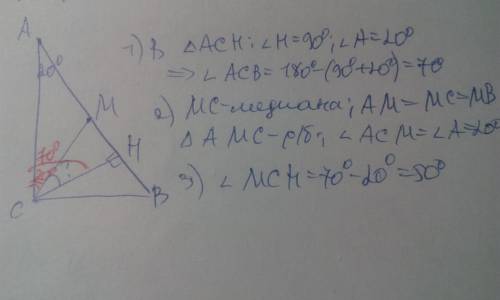 A
20°
M
H
70°
?
C
B
1) В △ACH: ∠H=90°; ∠A=20°
⇒ ∠ACB=180°-(90°+20°)=70°
2) MC-медиана; AM=MC=MB
△AMC-р/б; ∠ACM=∠A=20°
3) ∠MCH=70°-20°=50°